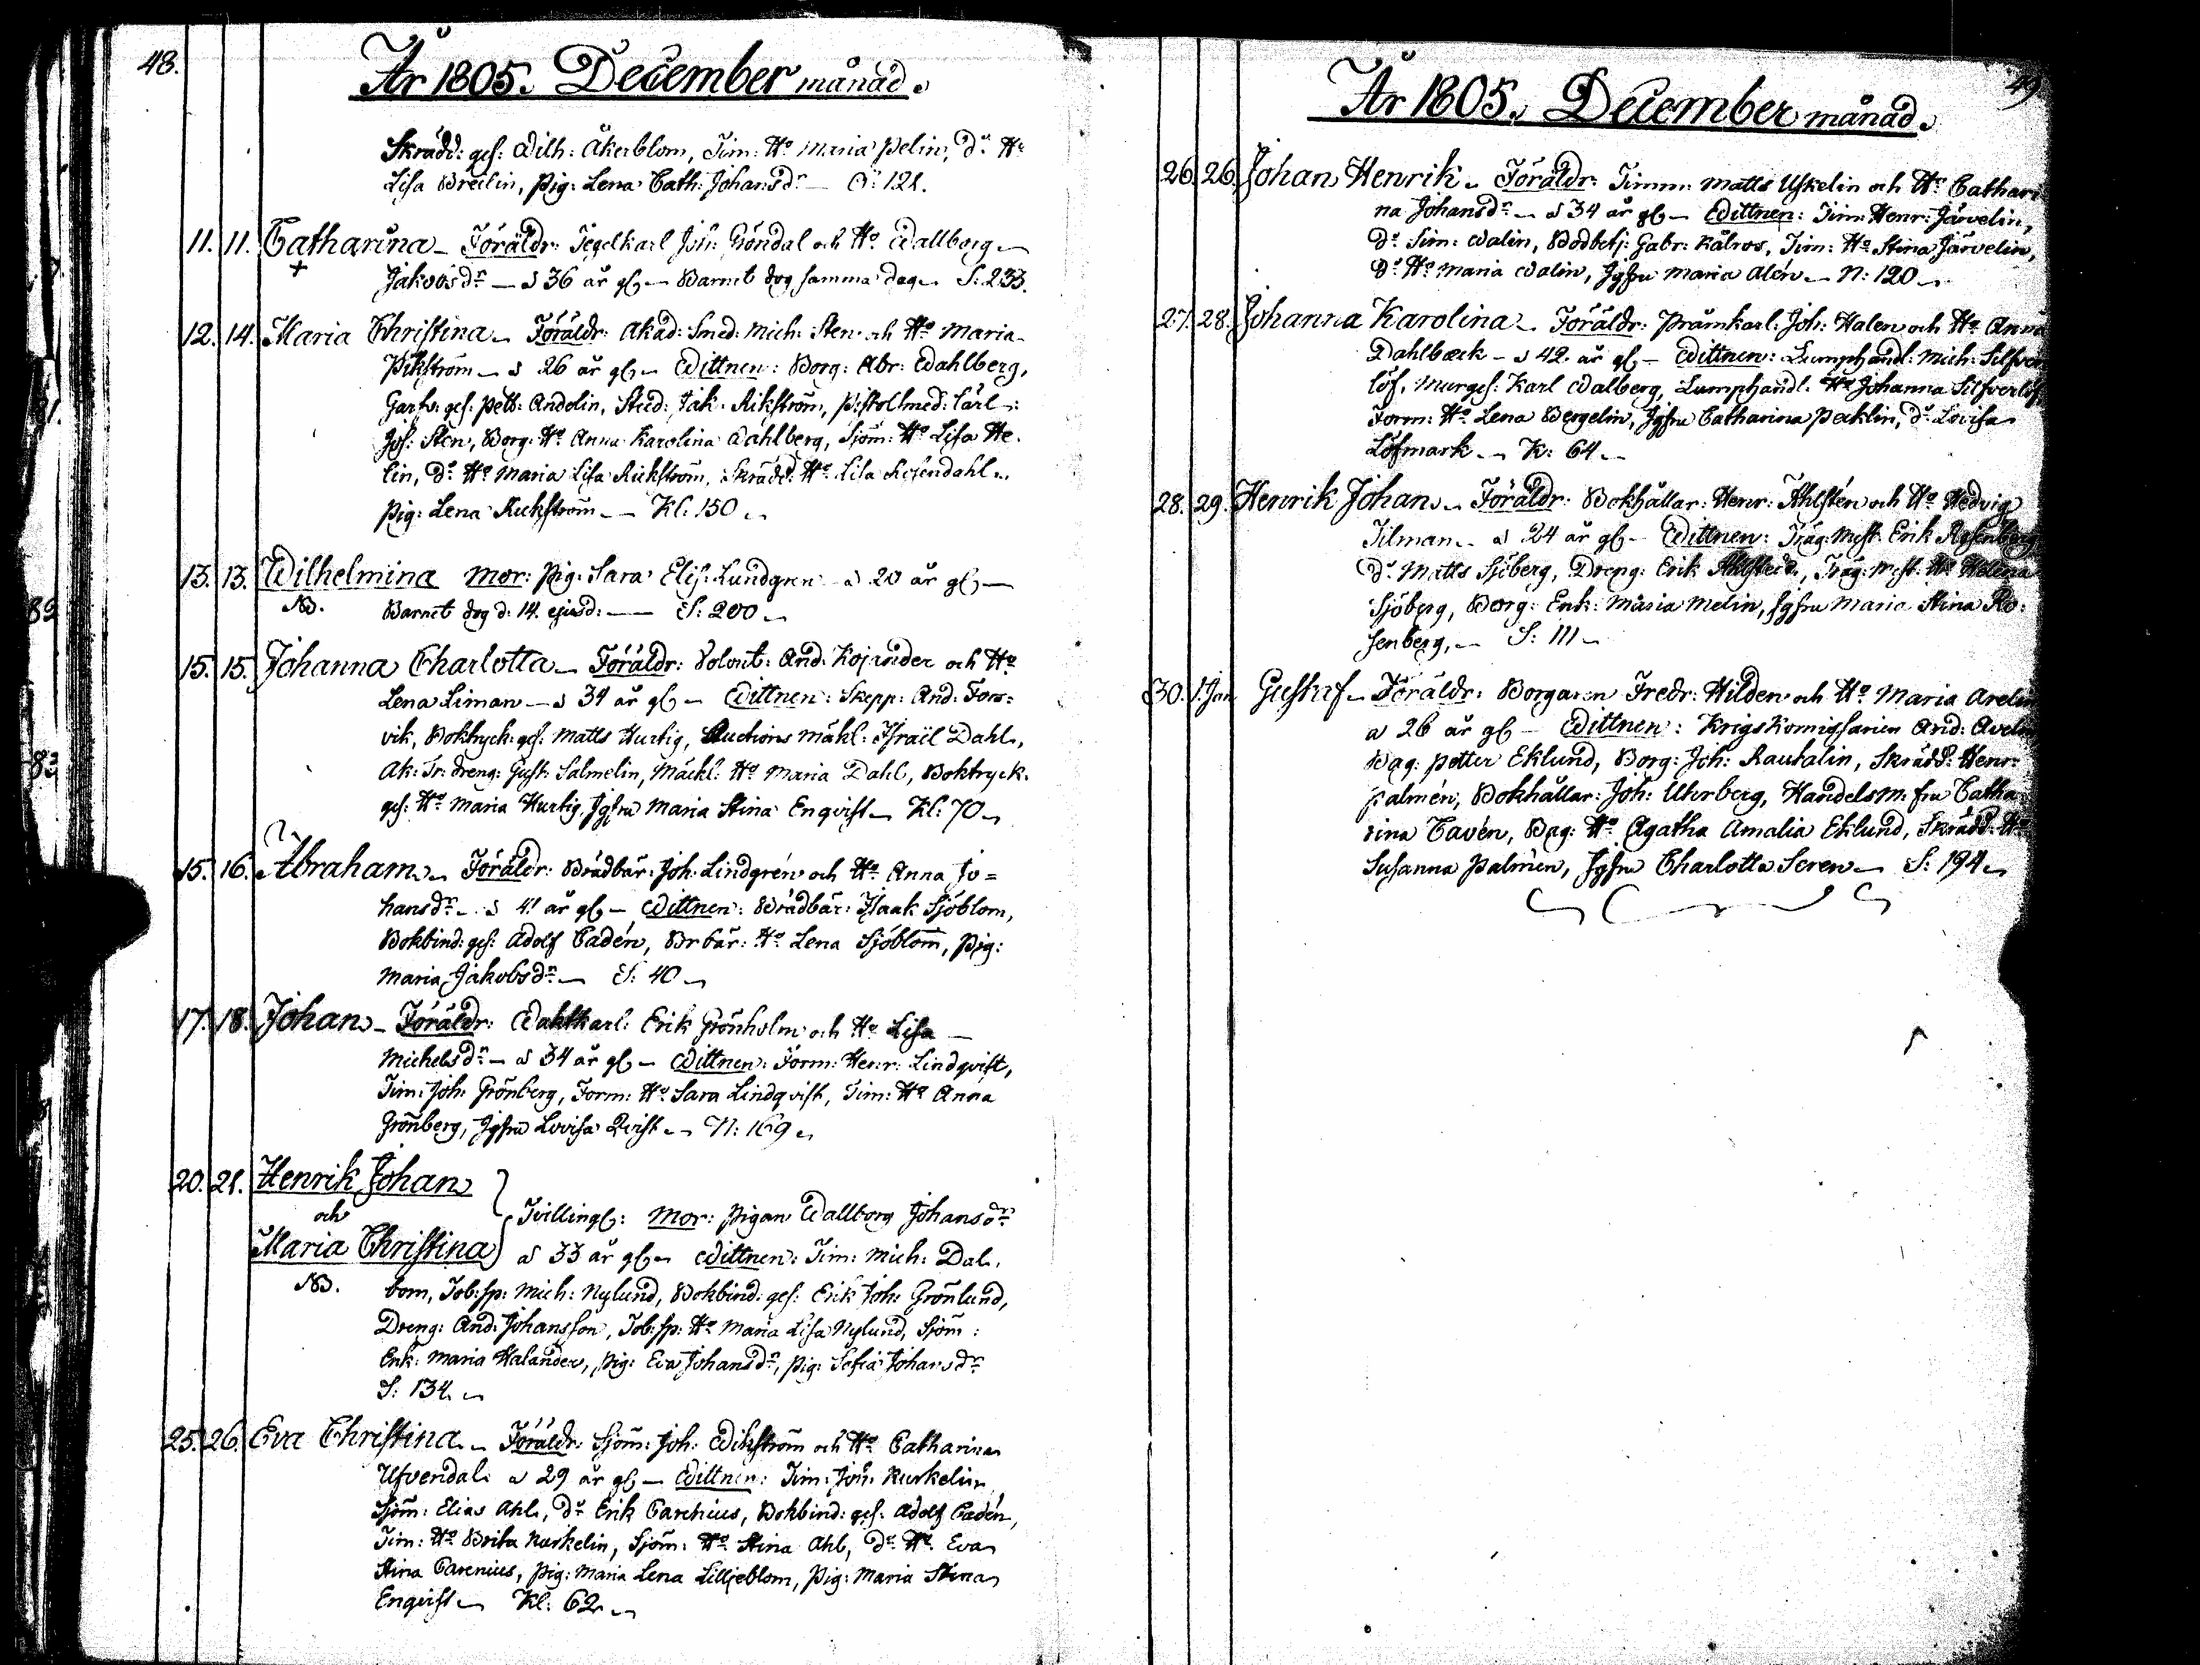 48.
År 1805. December månad.
Skrädd: ges: Wilh: Åkerblom, Tim: Ho Maria Pelin, Do Ho
Lisa Breilin, Pig: Lena Cath: Johansdr — A: 121.
11. 11. Catharina — Föräldr: Tegelkarl Joh: Gröndal och Ho Wallborg
+ Jakobsdr — a 36 år gl — Barnet dog samma dag — S: 233.
12. 14. Maria Christina — Föräldr: Akad: Smed: Mich: Sten och Ho Maria
Vikström — a 26 år gl — Wittnen: Borg: Abr: Wahlberg,
Garfv: ges: Pett: Andelin, Stud: Jak: Rikström, Carl
Jos: Sten, Borg: Ho Anna Karolina Wahlberg, Sjöm: Ho Lisa He-
lin, Do Ho Maria Lisa Rickström, Skrädd: Ho Lisa Rosendahl
Pig: Lena Rickström — Kl: 150
13. 13. Wilhelmina Mor: Pig: Sara Elis: Lundgren a 20 år gl —
NB. Barnet dog d: 14. ejusd: — S: 200
15. 15. Johanna Charlotta — Föräldr: Volont: And: Kojander och Ho
Lena Liman — a 34 år gl — Wittnen: Skepp: And: Fors-
vik, Boktryck: ges: Matts Hurtig, Auctions mäkl: Israël Dahl,
Ak: Tr: dreng: Gust: Salmelin, Mäckl: Ho Maria Dahl, Boktryck:
ges: Ho Maria Hurtig, Jgfru Maria Stina Enqvist — Kl: 70
15. 16. Abraham — Föräldr: Brädbär: Joh: Lindgrén och Ho Anna Jo=
hansdr — a 41 år gl — Wittnen: Brädbär: Isaak Sjöblom,
Bokbind: ges: Adolf Cadén, Br bär: Ho Lena Sjöblom, Pig:
Maria Jakobsdr — S: 40
17. 18. Johan — Föräldr: Wahtkarl: Erik Grönholm och Ho Lisa —
Michelsdr — a 34 år gl — Wittnen: Form: Henr: Lindqvist,
Tim: Joh: Grönberg, Form: Ho Sara Lindqvist, Tim: Ho Anna
Grönberg, Jgfru Lovisa Qvist — N: 169
20. 21. Henrik Johan
och Tvillingl: Mor: Pigan Wallborg Johansdr
Maria Christina a 33 år gl — Wittnen: Tim: Mich: Dal-
NB. bom, Tob: sp: Mich: Nylund, Bokbind: ges: Erik Joh: Grönlund,
Dreng: And: Johansson, Tob: sp: Ho Maria Lisa Nylund, Sjöm:
Enk: Maria Halander, Pig: Eva Johansdr, Pig: Sofia Johansdr
S: 134
25. 26. Eva Christina — Föräldr: Sjöm: Joh: Wikström och Ho Catharina
Ufvendal a 29 år gl — Wittnen: Tim: Joh: Kurkelin,
Sjöm: Elias Ahl, Do Erik Carenius, Bokbind: ges: Adolf Cadén,
Tim: Ho Brita Kurkelin, Sjöm: Ho Stina Ahl, Do Ho Eva
Stina Carenius, Pig: Maria Lena Lilljeblom, Pig: Maria Stina
Enqvist — Kl: 62
49
År 1805. December månad.
26. 26. Johan Henrik — Föräldr: Timm: Matts Uskelin och Ho Cathari
na Johansdr — a 34 år gl — Wittnen: Tim: Henr: Järvelin,
Do Sim: Walin, Bodbetj: Gabr: Kälros, Tim: Ho Stina Järvelin,
Do Ho Maria Walin, Jgfru Maria Alén — N: 120
27. 28. Johanna Karolina — Föräldr: Pråmkarl: Joh: Halen och Ho Anna
Dahlbæck — a 42 år gl — Wittnen: Lumphandl: Mich: Silfver
löf, Murges: Karl Walberg, Lumphandl: Ho Johanna Silfverlöf,
Form: Ho Lena Bergelin, Jgfru Catharina Pecklin, Do Lovisa
Löfmark — K: 64
28. 29. Henrik Johan — Föräldr: Bokhållar: Henr: Ahlstén och Ho Hedvig
Tilman — a 24 år gl — Wittnen: Träg: Mest: Erik Rosenberg
Do Matts Sjöberg, Dreng: Erik Ahlstedt, Träg: Mest: Ho Helena
Sjöberg, Borg: Enk: Maria Melin, Jgfru Maria Stina Ro-
senberg, — S: 111
30. 1. Jan Gustaf — Föräldr: Borgaren Fredr: Hilden och Ho Maria Avelin
a 26 år gl — Wittnen: Krigskomissarien And: Avelin
Bag: Petter Eklund, Borg: Joh: Rautalin, Skrädd: Henr:
Palmén, Bokhållar: Joh: Uhrberg, Handelsm: fru Catha
rina Cavén, Bag: Ho Agatha Amalia Eklund, Skrädd: Ho
Susanna Palmén, Jgfru Charlotta Seren — S: 194